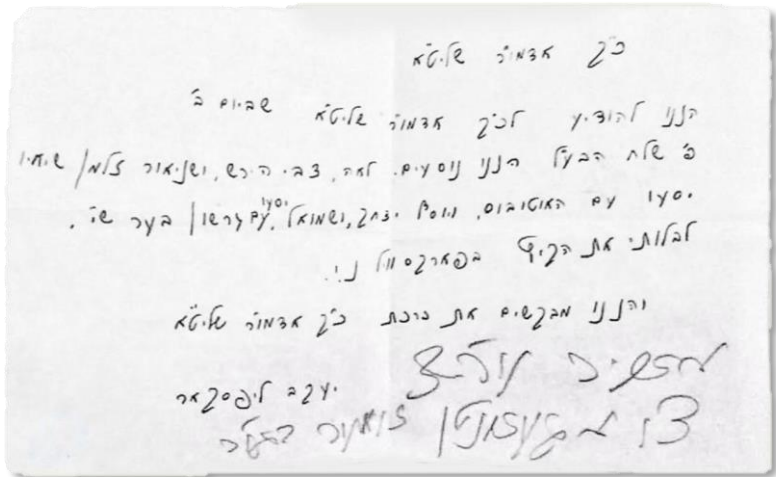 כ"ק אדמו"ר שליט"א
הננו להודיע לכ"ק אדמו"ר שליט"א שביום ב'
פ' שלח הבע"ל הננו נוסעים. לאה, צבי הירש, ושניאור זלמן שיחיו
יסעו עם האוטובוס, ויוסף יצחק, ושמואל, יסעו עם גרשון בער שי',
לבלות את הקיץ בפארקסוויל נ.י.
והננו מבקשים את ברכת כ"ק אדמו"ר שליט"א
יעקב ליפסקאר